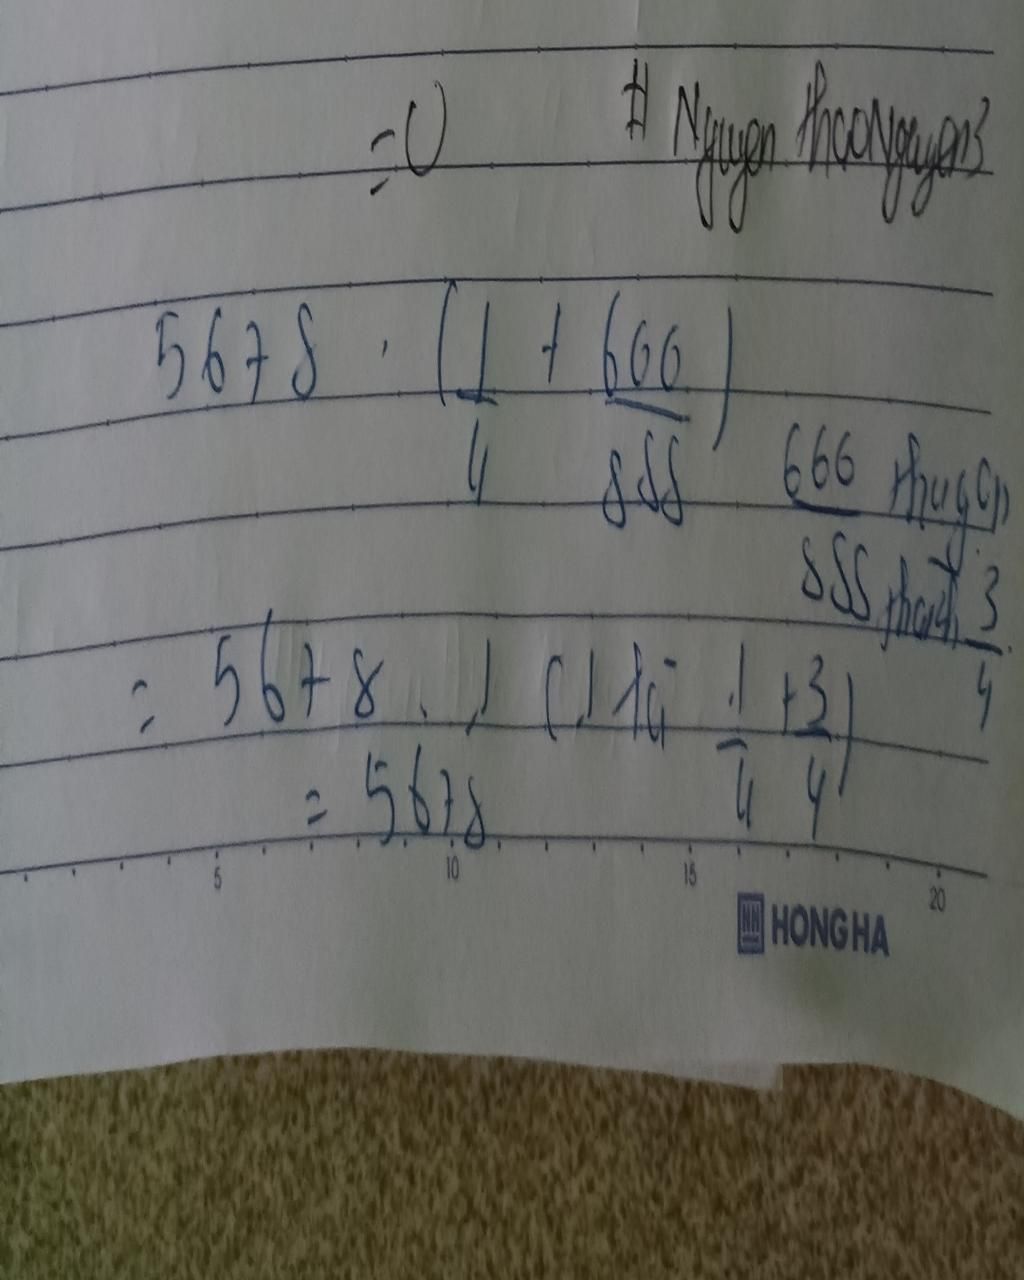 =0
# Nguyen thaoNguyen3
5678 . (1/4 + 666/888)
666/888 rhu gọn
thành 3/4
= 5678 . 1 (1 từ 1/4 + 3/4)
= 5678
5 10 15 20
HONG HA